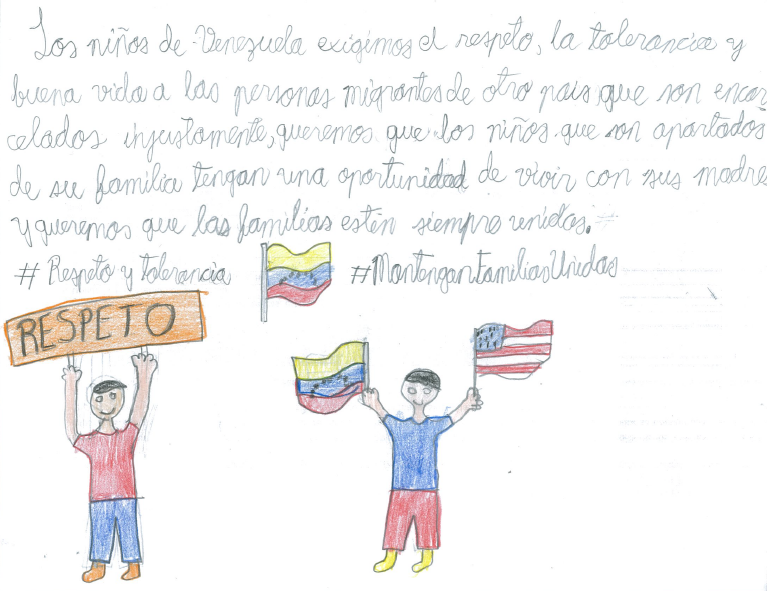 Los niños de Venezuela exigimos el respeto, la tolerancia y
buena vida a las personas migrantes de otro país que son encar
celados injustamente, queremos que los niños que son apartados
de su familia tengan una oportunidad de vivir con sus madres
y queremos que las familias estén siempre unidas.
# Respeto y tolerancia #MantenganFamiliasUnidas
RESPETO